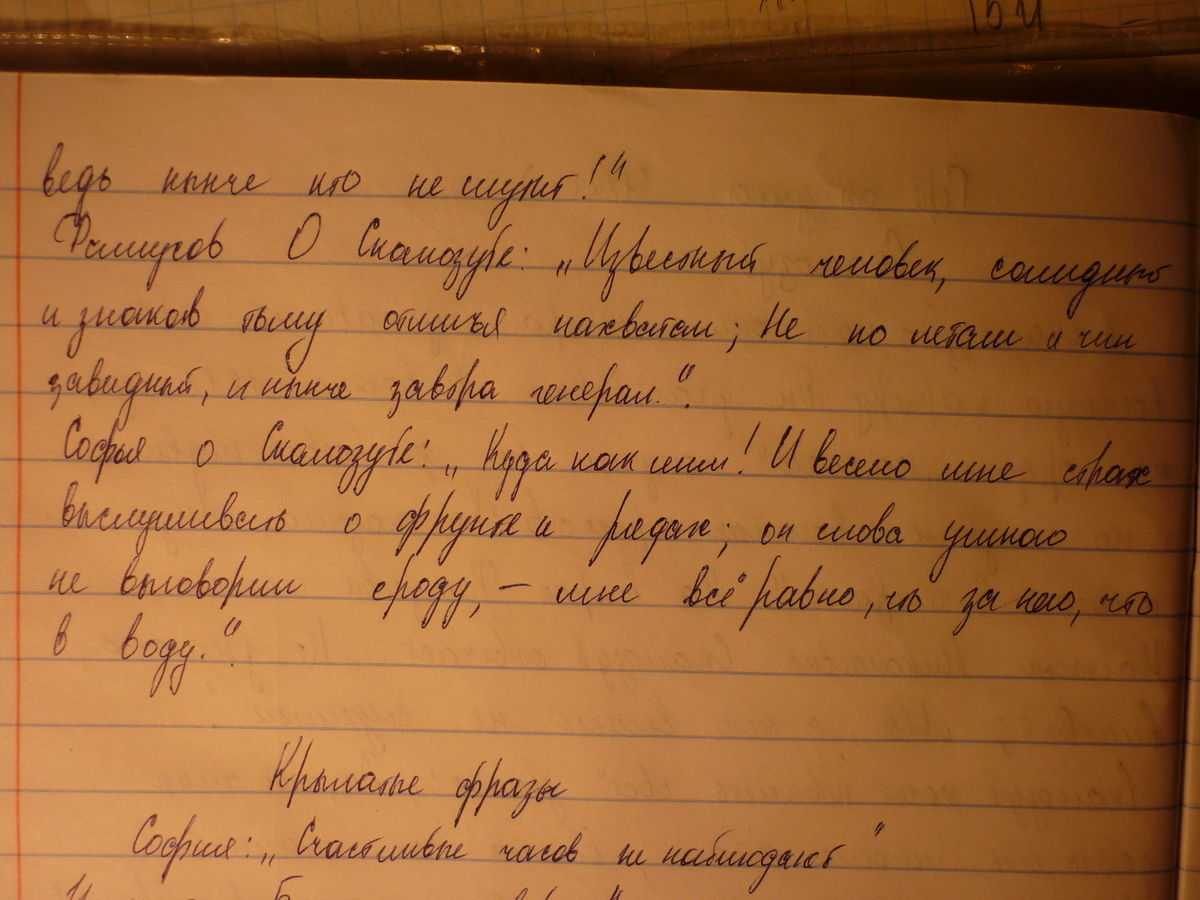 ведь нынче кто не шутит!"
Фамусов О Скалозубе: „Известный человек, солидный
и знаков тьму отличья нахватал; Не по летам и чин
завидный, и нынче завтра генерал.".
Софья о Скалозубе: „Куда как мил! И весело мне страх
выслушивать о фрунте и рядах; он слова умного
не выговорил сроду, – мне всё равно, что за него, что
в воду.".
Крылатые фразы
София: „Счастливые часов не наблюдают"